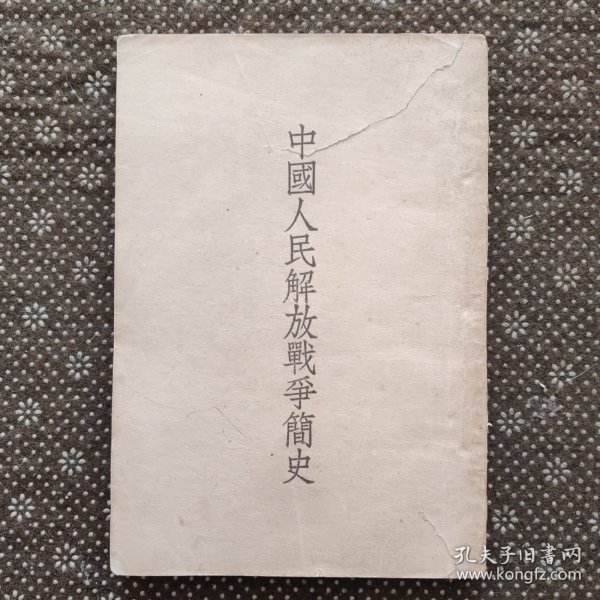 中國人民解放戰爭簡史
孔夫子旧書网
www.kongfz.com